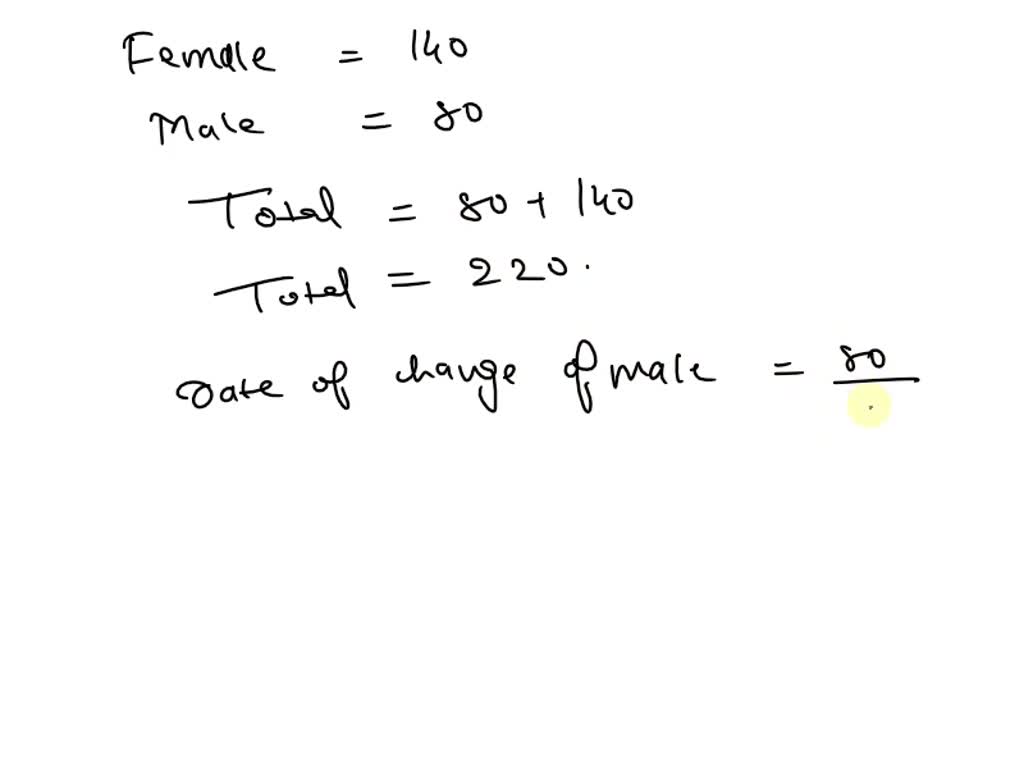 Female = 140
Male = 80
Total = 80 + 140
Total = 220.
rate of change of male = 80/